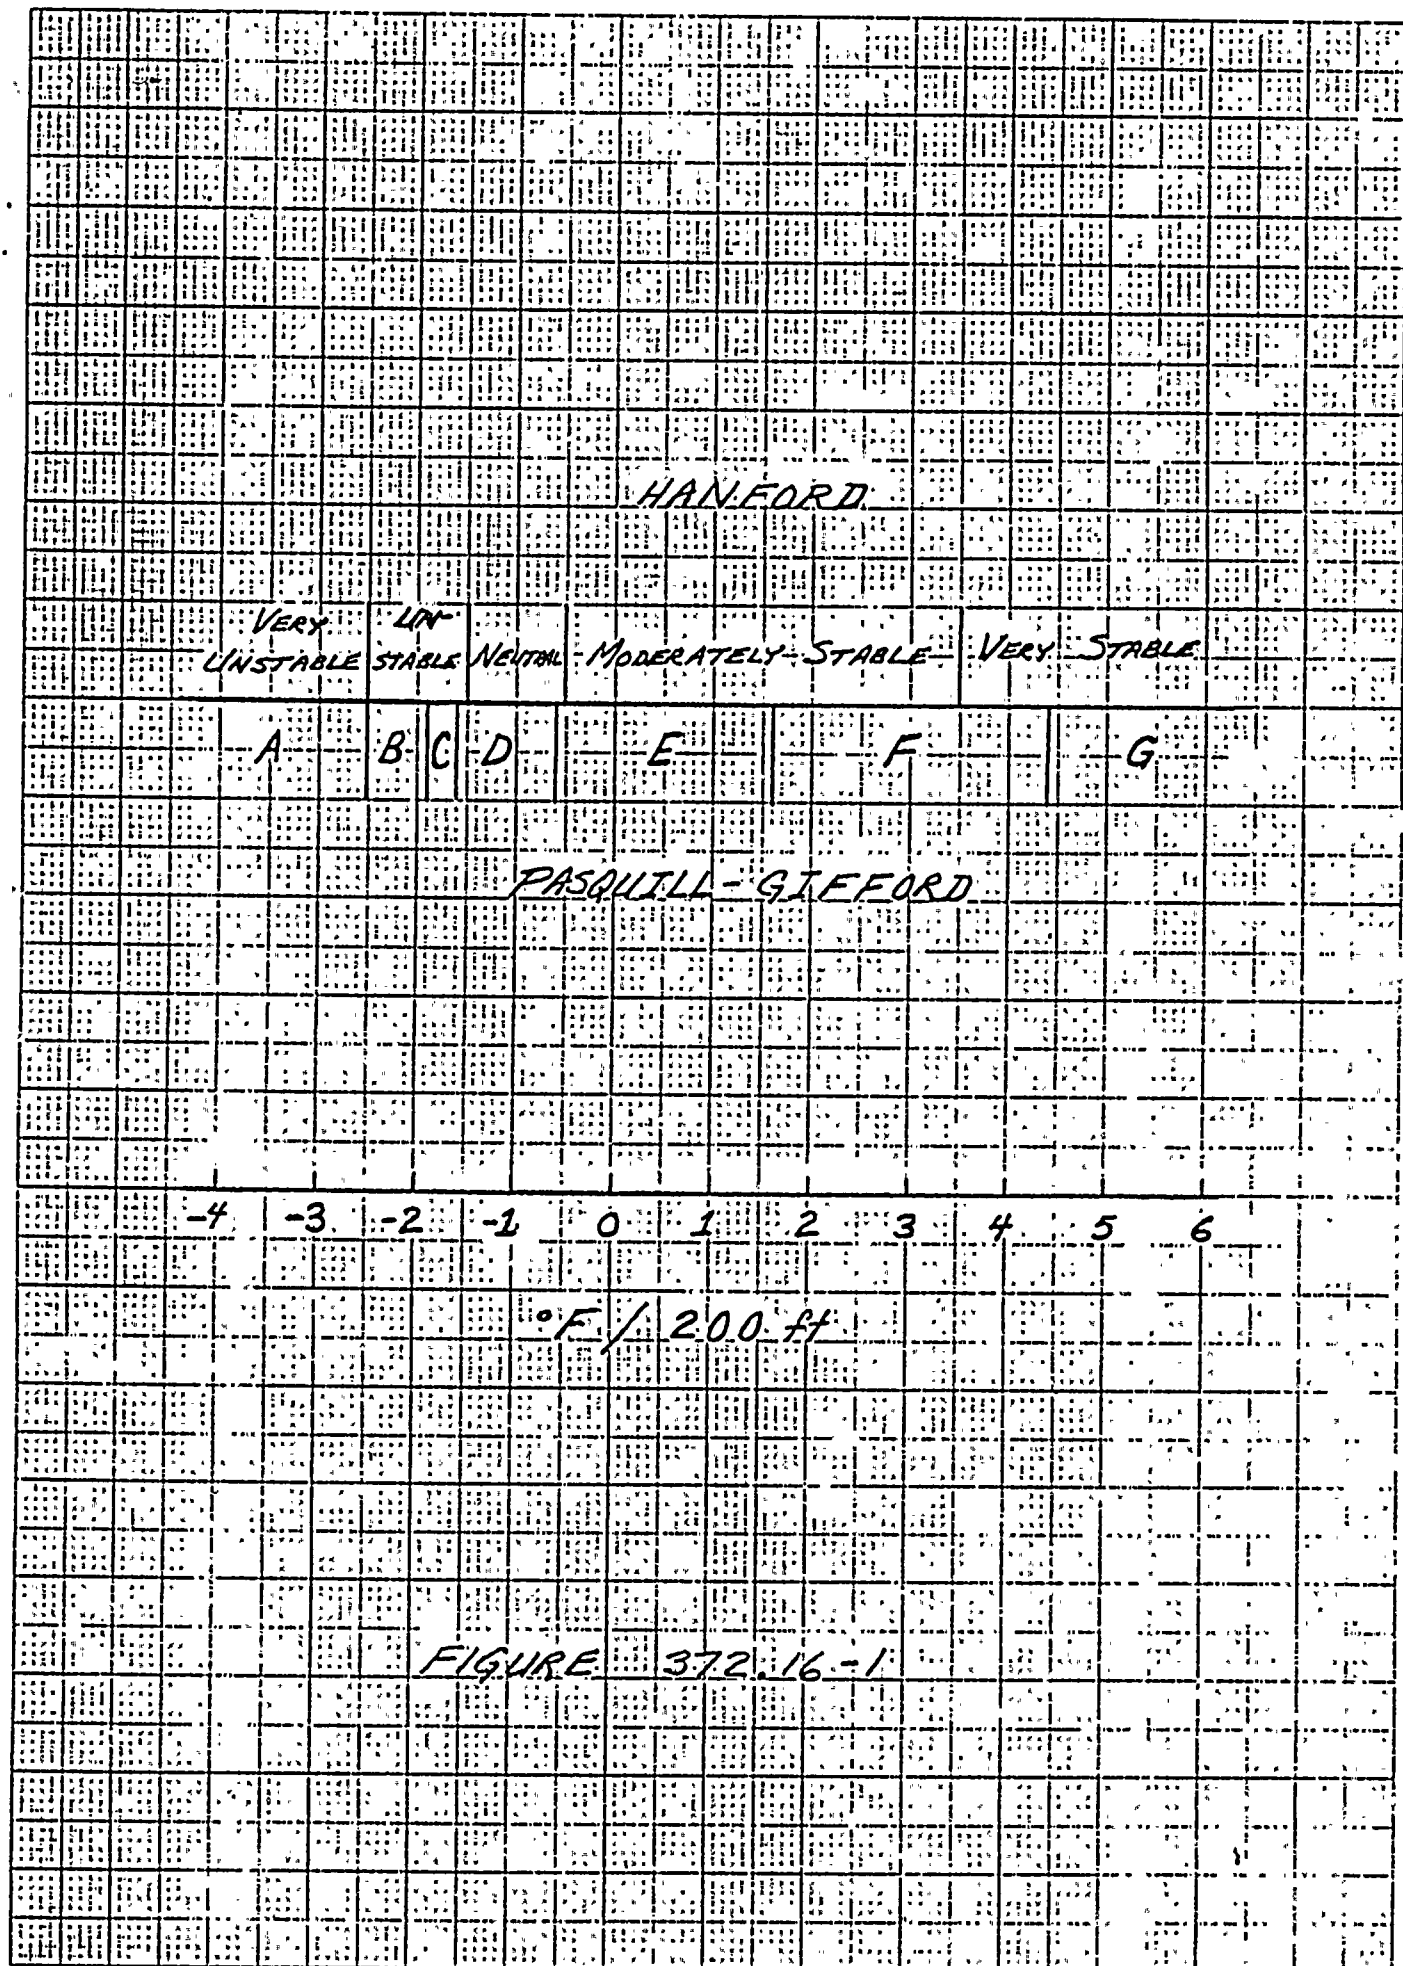 HANFORD
VERY UNSTABLE UN-STABLE NEUTRAL MODERATELY STABLE VERY STABLE
A B C D E F G
PASQUILL - GIFFORD
-4 -3 -2 -1 0 1 2 3 4 5 6
°F / 200 ft
FIGURE 372.16-1